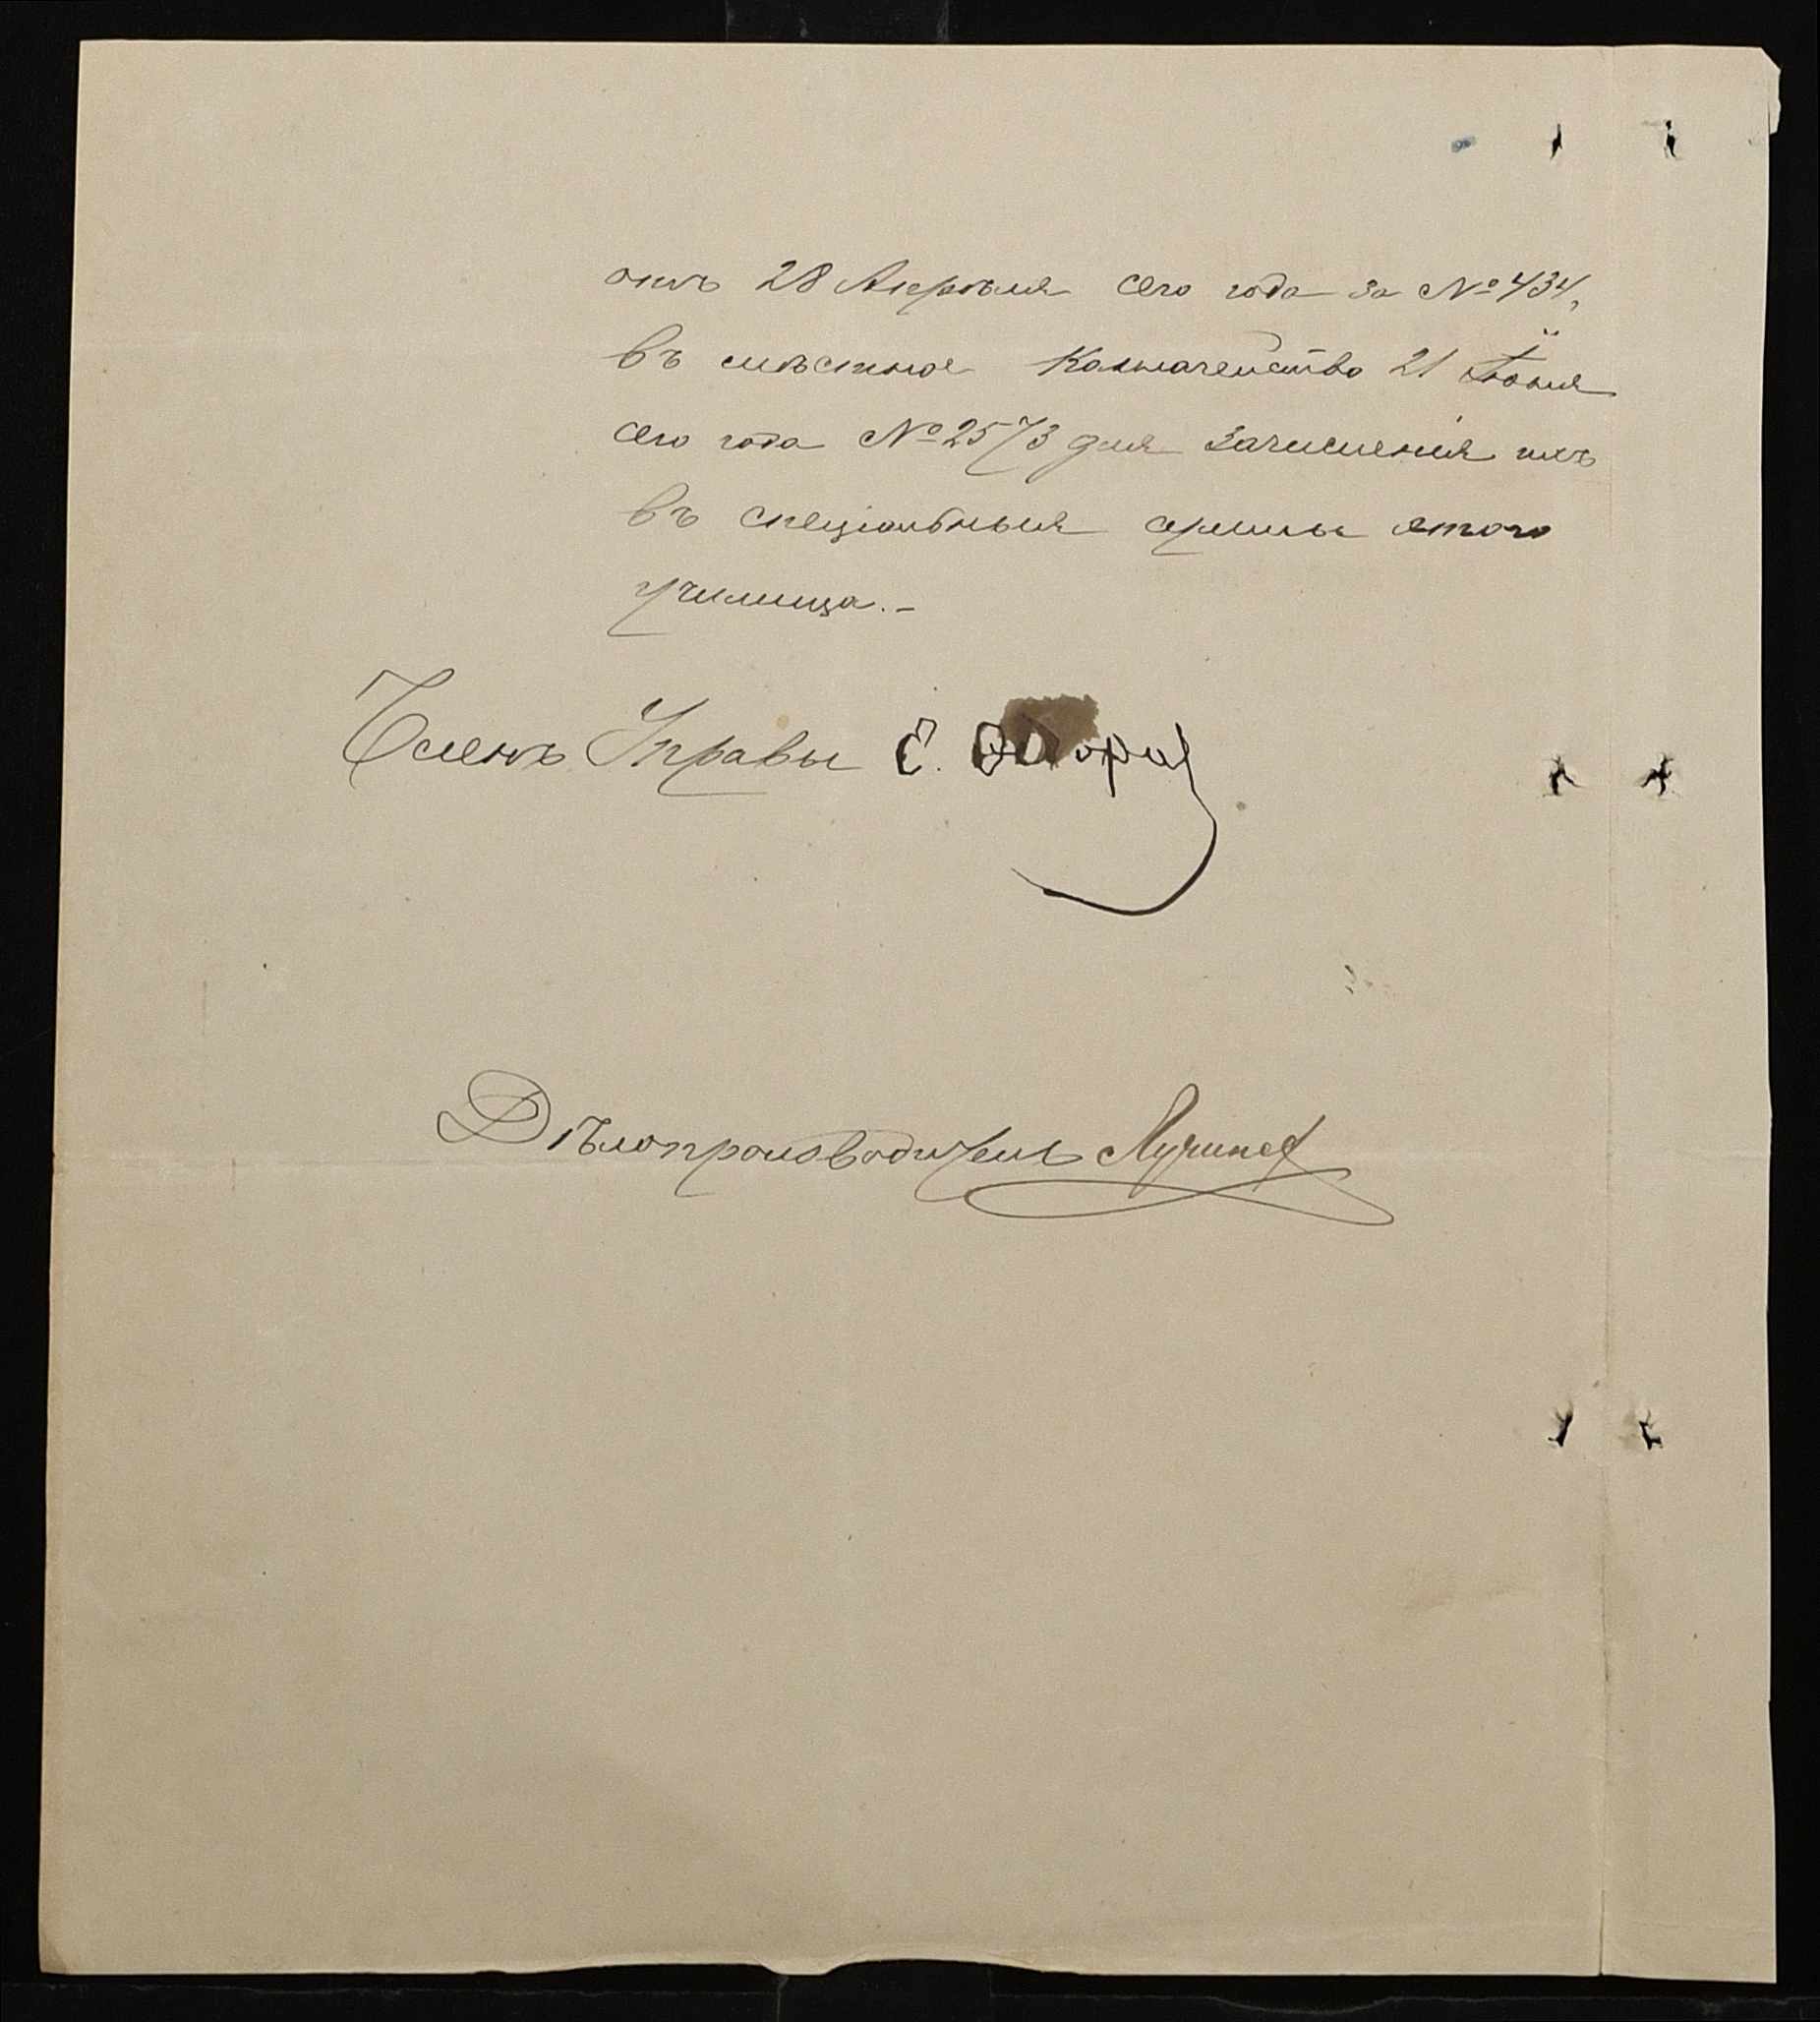 отъ 28 Апрѣля сего года за № 434,
въ мѣстное Казначейство 21 Іюня
сего года № 2573 для зачисленія ихъ
въ спеціальныя суммы этого
училища.-
Членъ Управы Е.
Дѣлопроизводитель